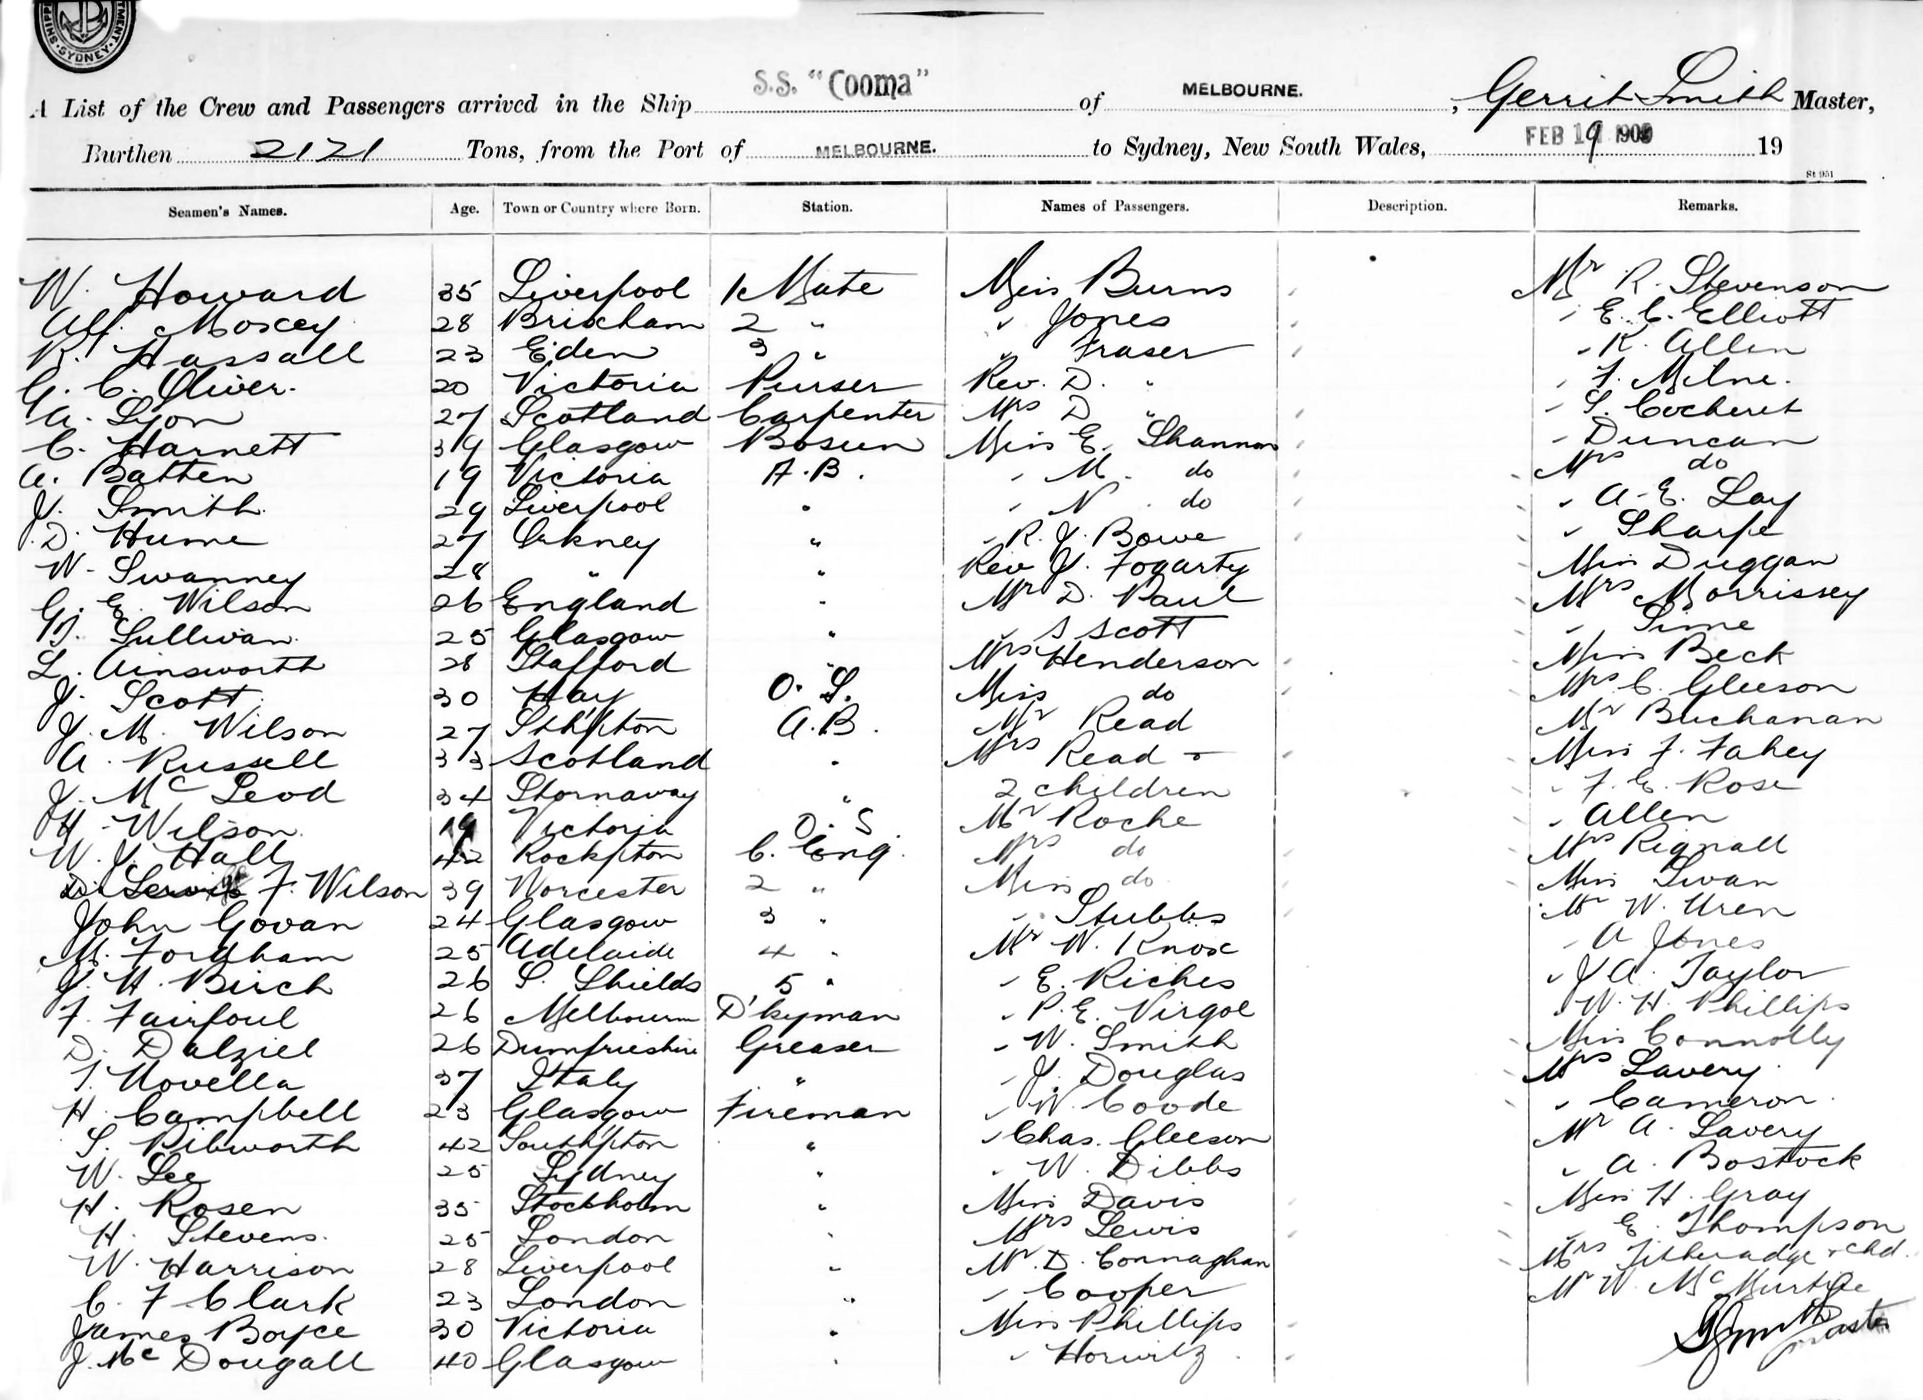 SYDNEY
A List of the Crew and Passengers arrived in the Ship S.S. "Cooma" of MELBOURNE. , Gerrit Smith Master,
Burthen 2121 Tons, from the Port of MELBOURNE. to Sydney, New South Wales, FEB 19 190 19
St 951
Seamen's Names. Age. Town or Country where Born. Station. Names of Passengers. Description. Remarks.
W. Howard 35 Liverpool 1 Mate Miss Burns Mr R. Stevenson
Alf. Moxey 28 Brixham 2 " " Jones " E. C. Elliott
R. Hassall 23 Eden 3 " " Fraser " R. Allen
G. C. Oliver. 20 Victoria Purser Rev. D. " " F. Milne.
A. Lyon 27 Scotland Carpenter Mrs D " " S. Cocheret
C. Harnett 39 Glasgow Bosun Miss E. Shannon " Duncan
A. Batten 19 Victoria A.B. " M. do Mrs do
J. Smith 29 Liverpool " " N. do " A. E. Lay
D. Hume 27 Orkney " " R. J. Bowe " Sharpe
W. Swanney 28 " " Rev J. Fogarty Miss Duggan
G. E. Wilson 26 England " Mr D. Paul Mrs Morrissey
Sullivan 25 Glasgow " " S Scott " Sime
L. Ainsworth 28 Stafford " Mrs Henderson Miss Beck
J. Scott 30 Hay O. S. Miss do Mrs C. Gleeson
J. M. Wilson 27 Sth'pton A.B. Mr Read Mr Buchanan
A. Russell 33 Scotland " Mrs Read + Miss F. Fahey
J. McLeod 34 Stornaway " 2 children " F. E. Rose
H. Wilson. 19 Victoria O. S Mr Roche " Allen
W. J. Hall 42 Rockpton C. Eng. Mrs do Mrs Rignall
F. Wilson 39 Worcester 2 " Miss do Miss Swan
John Govan 24 Glasgow 3 " " Stubbs Mr W. Uren
M. Fordham 25 Adelaide 4 " Mr W. Knox " A Jones
J. H. Birch 26 S. Shields 5 " " E. Riches " J A. Taylor
F. Fairfoul 26 Melbourn D'kyman " P. E. Virgoe " W. H. Phillips
D. Dalziel 26 Dumfrieshire Greaser " W. Smith Miss Connolly
Novella 37 Italy " " J. Douglas Mrs Lavery
H. Campbell 23 Glasgow Fireman " W. Coode " Cameron.
S. Pibworth 42 South'pton " " Chas. Gleeson Mr A. Lavery
W. Lee 25 Sydney " " W. Dibbs " A. Bostock
H. Rosen 35 Stockholm " Miss Davis Miss H. Gray
H. Stevens. 25 London " Mrs Lewis " E. Thompson
W. Harrison 28 Liverpool " Mr. D. Connaghan Mrs Titheradge + chd.
C. F Clark 23 London " " Cooper Mr W. Mc
James Boyce 30 Victoria " Miss Phillips GSmith
J. McDougall 40 Glasgow " " Horwitz Master